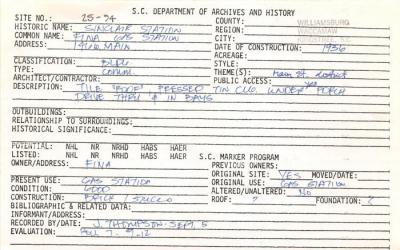 S.C. DEPARTMENT OF ARCHIVES AND HISTORY
SITE NO.: 25-94
COUNTY: WILLIAMSBURG
HISTORIC NAME: SINCLAIR STATION
REGION: WACCAMAW
COMMON NAME: FINA GAS STATION
CITY: KINGSTREE, SC
ADDRESS: MAIN
DATE OF CONSTRUCTION: 1936
ACREAGE:
CLASSIFICATION: BLDG
STYLE:
TYPE: COMM.
THEME(S): Main St. District
ARCHITECT/CONTRACTOR:
PUBLIC ACCESS: yes
DESCRIPTION: TILE "ROOF" PRESSED TIN CLG. UNDER PORCH
DRIVE THRU & IN BAYS
OUTBUILDINGS:
RELATIONSHIP TO SURROUNDINGS:
HISTORICAL SIGNIFICANCE:
POTENTIAL: NHL NR NRHD HABS HAER
LISTED: NHL NR NRHD HABS HAER S.C. MARKER PROGRAM
OWNER/ADDRESS: FINA
PREVIOUS OWNERS:
ORIGINAL SITE: YES MOVED/DATE:
PRESENT USE: GAS STATION
ORIGINAL USE: GAS STATION
CONDITION: GOOD
ALTERED/UNALTERED: No
CONSTRUCTION: BRICK / STUCCO
ROOF: ? FOUNDATION: ?
BIBLIOGRAPHIC & RELATED DATA:
INFORMANT/ADDRESS:
RECORDED BY/DATE: J. THOMPSON SEPT. 5
EVALUATION: